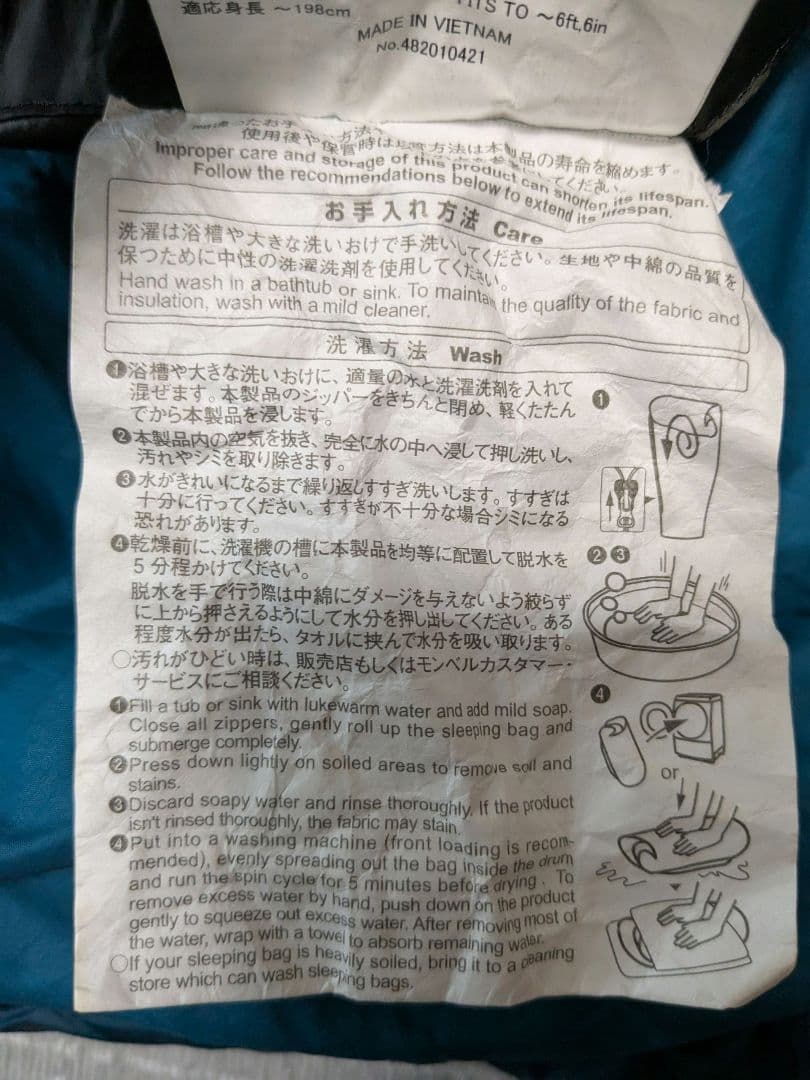 適応身長 ～198cm
TS TO ～6ft,6in
MADE IN VIETNAM
No.482010421
使用後や
方法は本製品の寿命を縮めます。
Improper care and storage of this product can shorten its lifespan.
Follow the recommendations below to extend its lifespan.
お手入れ方法 Care
洗濯は浴槽や大きな洗いおけで手洗いしてください。生地や中綿の品質を
保つために中性の洗濯洗剤を使用してください。
Hand wash in a bathtub or sink. To maintain the quality of the fabric and
insulation, wash with a mild cleaner.
洗濯方法 Wash
❶浴槽や大きな洗いおけに、適量の水と洗濯洗剤を入れて
混ぜます。本製品のジッパーをきちんと閉め、軽くたたん
でから本製品を浸します。
❷本製品内の空気を抜き、完全に水の中へ浸して押し洗いし、
汚れやシミを取り除きます。
❸水がきれいになるまで繰り返しすすぎ洗いします。すすぎは
十分に行ってください。すすぎが不十分な場合シミになる
恐れがあります。
❹乾燥前に、洗濯機の槽に本製品を均等に配置して脱水を
5分程かけてください。
脱水を手で行う際は中綿にダメージを与えないよう絞らず
に上から押さえるようにして水分を押し出してください。ある
程度水分が出たら、タオルに挟んで水分を吸い取ります。
○汚れがひどい時は、販売店もしくはモンベルカスタマー・
サービスにご相談ください。
❶Fill a tub or sink with lukewarm water and add mild soap.
Close all zippers, gently roll up the sleeping bag and
submerge completely.
❷Press down lightly on soiled areas to remove soil and
stains.
❸Discard soapy water and rinse thoroughly. If the product
isn't rinsed thoroughly, the fabric may stain.
❹Put into a washing machine (front loading is recom-
mended), evenly spreading out the bag inside the drum
and run the spin cycle for 5 minutes before drying. To
remove excess water by hand, push down on the product
gently to squeeze out excess water. After removing most of
the water, wrap with a towel to absorb remaining water.
○If your sleeping bag is heavily soiled, bring it to a cleaning
store which can wash sleeping bags.
❶
❷❸
❹
or